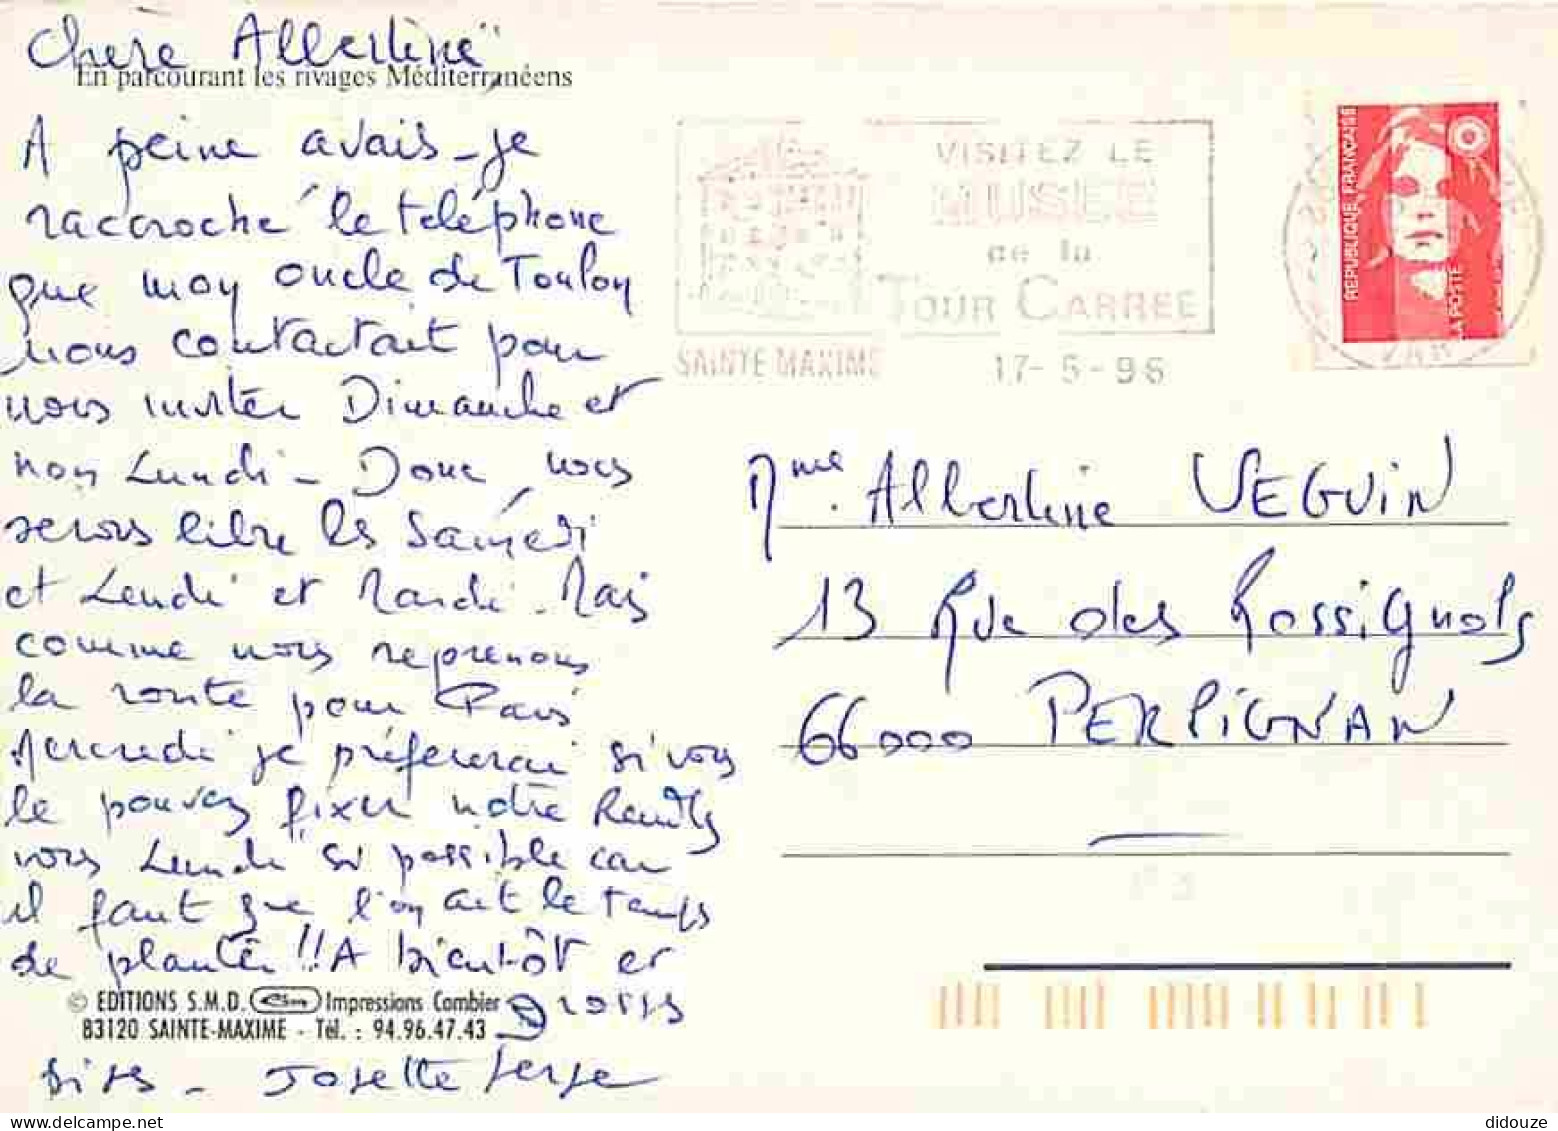 Chère Albertine
En parcourant les rivages Méditerranéens
A peine avais-je
raccroché le téléphone
que mon oncle de Toulon
nous contactait pour
nous inviter Dimanche et
non Lundi - Donc nous
serons libre les Samedi
et Lundi et Mardi - Mais
comme nous reprenons
la route pour Paris
Mercredi je préfererai si vous
le pouvez fixer notre Rendez
vous Lundi si possible car
il faut que l'on ait le temps
de planter!! A bientôt et
grosses
bises - Josette Serge
© EDITIONS S.M.D. Cim Impressions Combier
83120 SAINTE-MAXIME - Tél. : 94.96.47.43
VISITEZ LE
MUSEE
de la
TOUR CARREE
SAINTE MAXIME
17-5-96
REPUBLIQUE FRANÇAISE
LA POSTE
VAR
Mme. Albertine VEGUIN
13 Rue des Rossignols
66000 PERPIGNAN
didouze